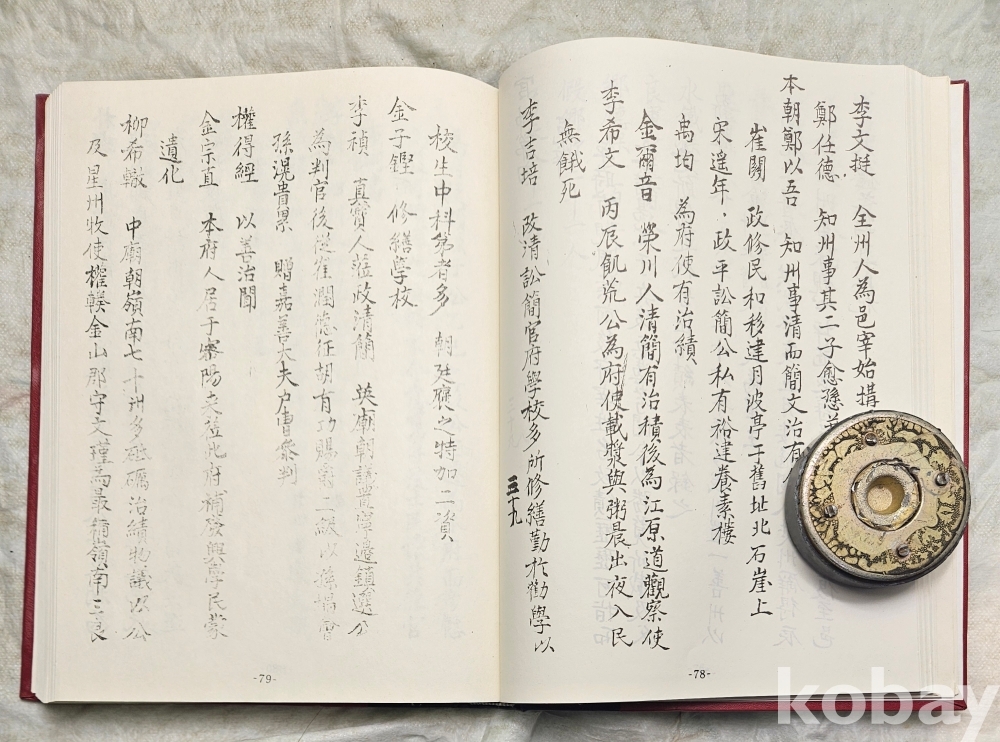 李文挺 全州人為邑宰始搆
鄭任德 知州事其二子愈孫
本朝鄭以吾 知州事清而簡文治有
崔關 政修民和移建月波亭于舊址北石崖上
宋遥年、政平訟簡公私有裕建養素樓
禹均 為府使有治績
金爾音 榮川人清簡有治積後為江原道觀察使
李希文 丙辰飢荒公為府使載漿與粥晨出夜入民
無餓死
李吉培 政清訟簡官府學校多所修繕勤於勸學以
三十九
-78-
校生中科第者多 朝廷褒之特加二資
金子鏗 修繕學校
李禎 真寶人蒞政清簡 英廟朝議置 邊鎮選公
為判官後從崔潤德征胡有功賜 二級以孫 曾
孫滉貴累 贈嘉善大夫戶曹叅判
權得經 以善治聞
金宗直 本府人居于密陽夫莅此府補 興學民蒙
遺化
柳希轍 中廟朝嶺南七十州多砥礪治績物議以公
及星州牧使權 金山郡守文瑾為最稱嶺南三良
-79-
kobay